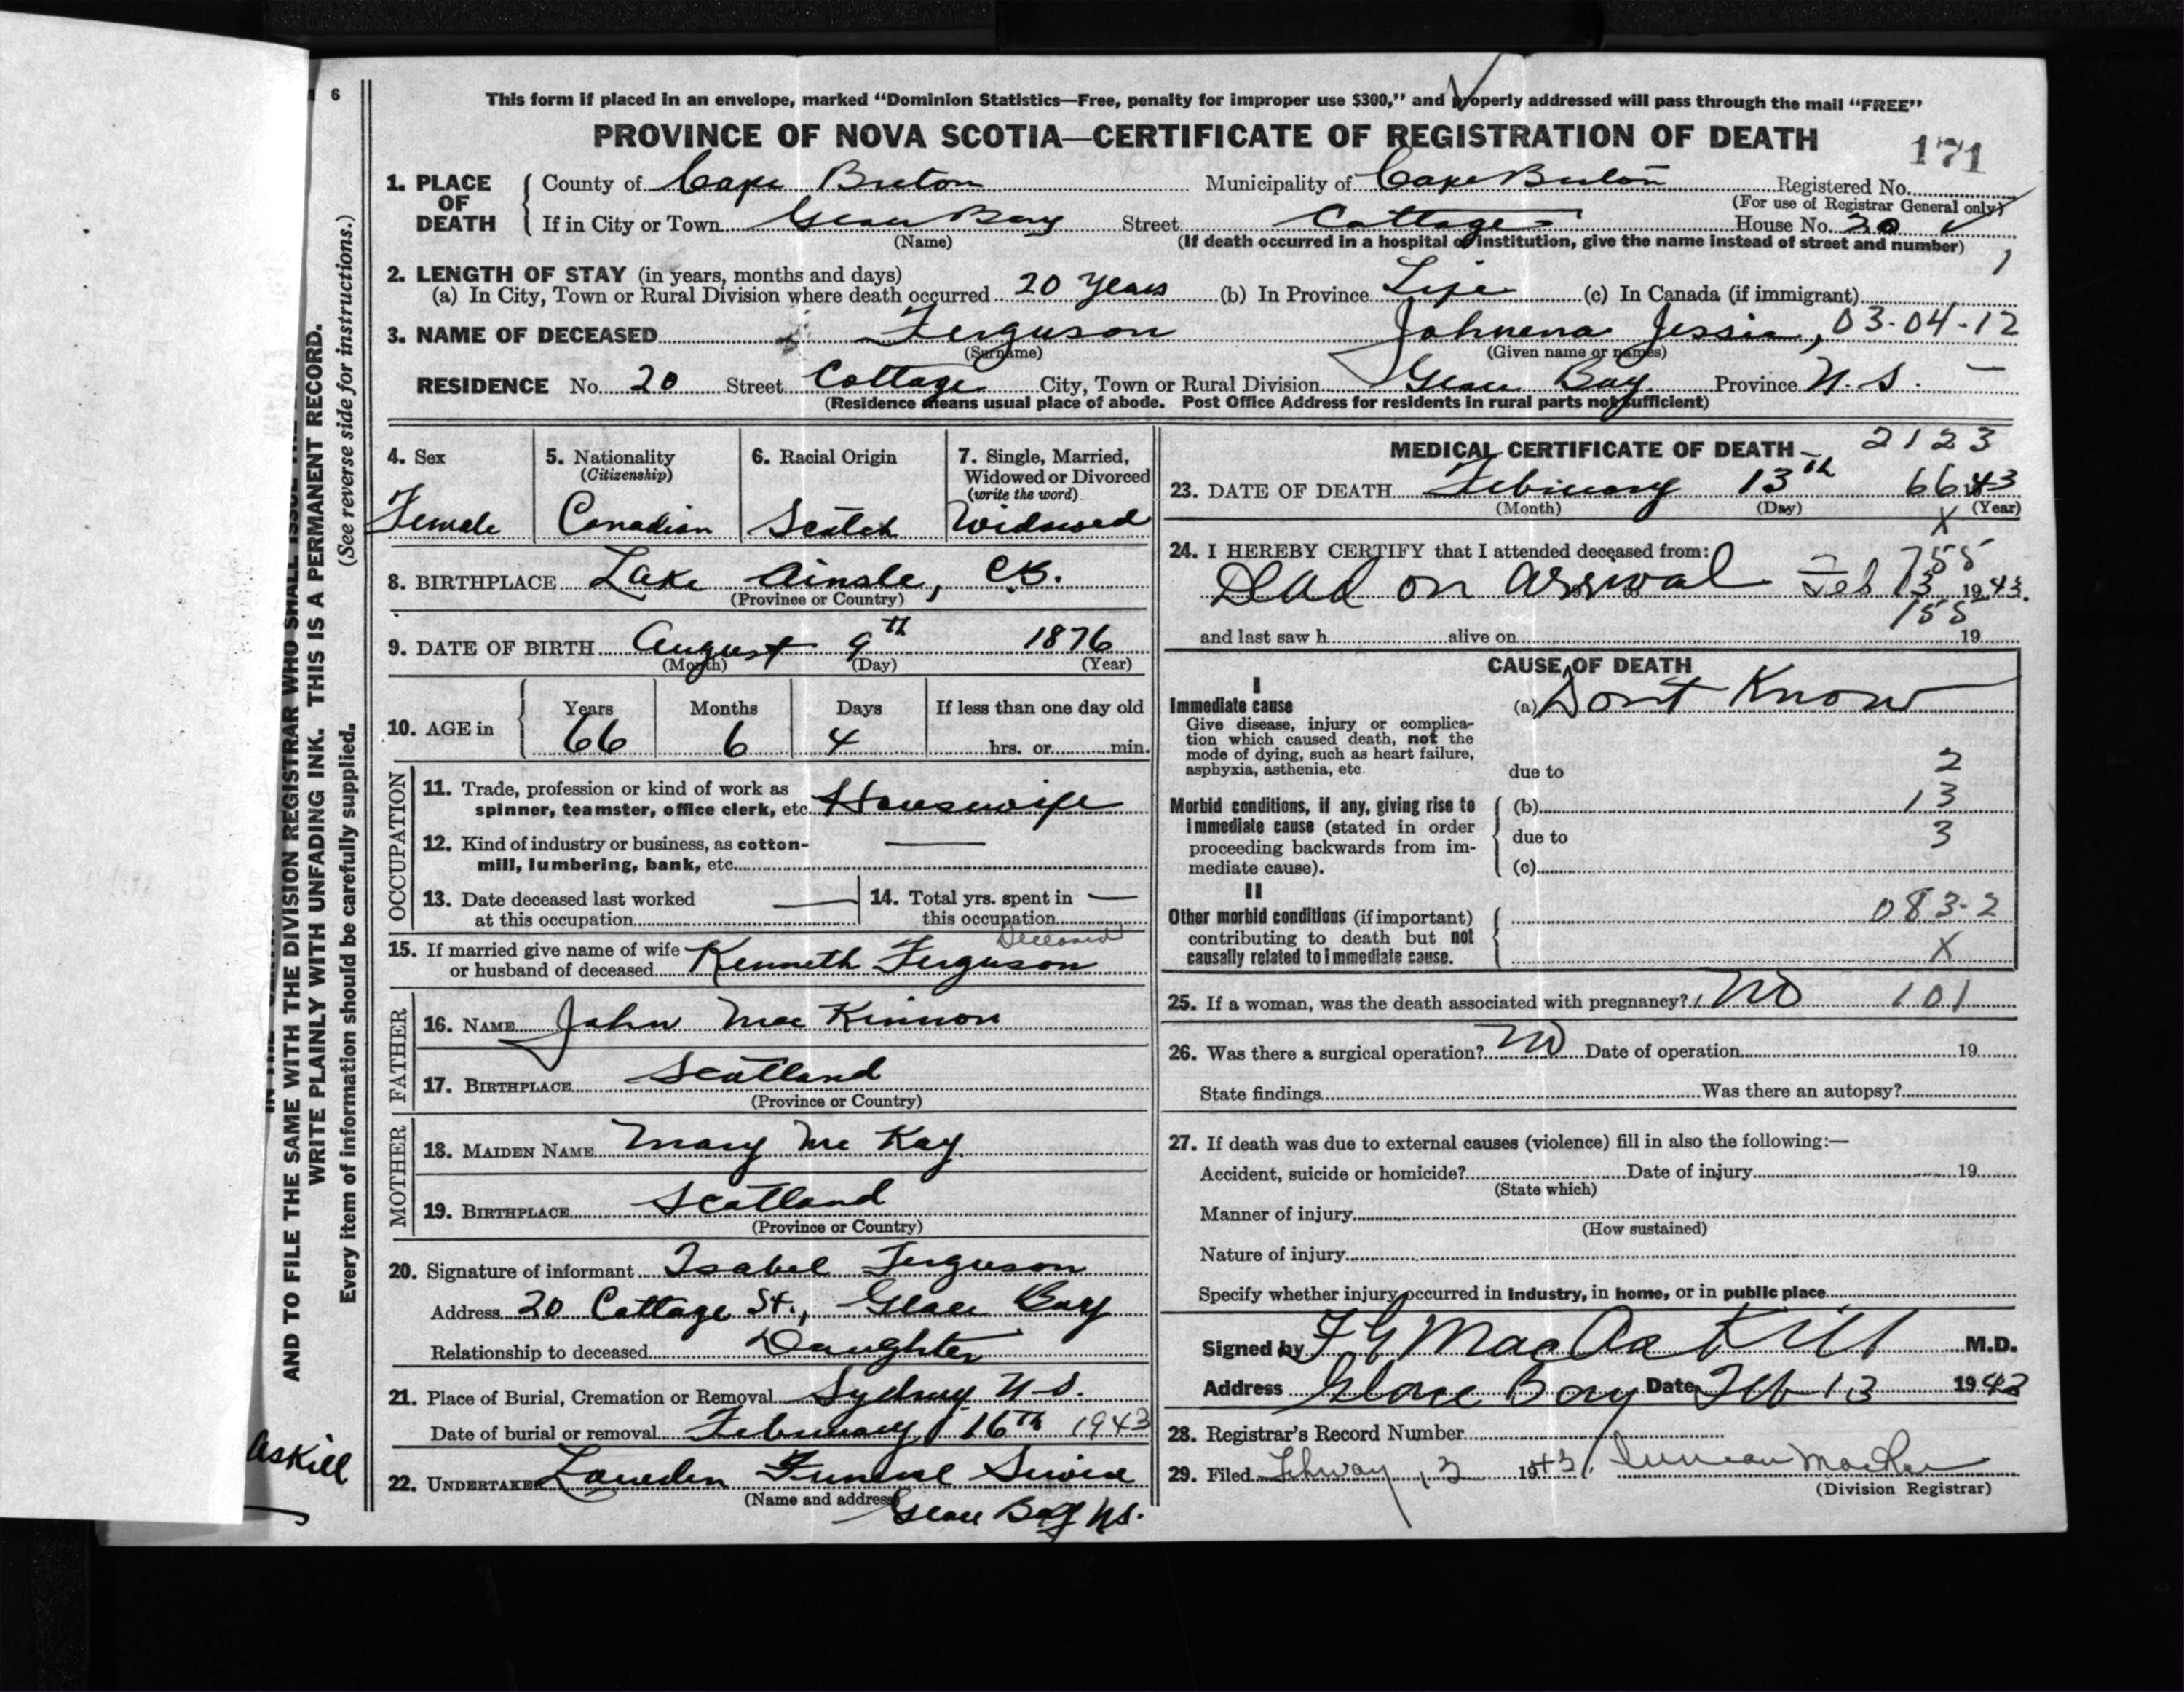 6
This form if placed in an envelope, marked "Dominion Statistics—Free, penalty for improper use $300," and properly addressed will pass through the mail "FREE"
PROVINCE OF NOVA SCOTIA—CERTIFICATE OF REGISTRATION OF DEATH
171
1. PLACE OF DEATH
County of Cape Breton Municipality of Cape Breton Registered No.
(For use of Registrar General only)
If in City or Town Glace Bay Street Cottage House No. 20
(Name) (If death occurred in a hospital or institution, give the name instead of street and number)
1
2. LENGTH OF STAY (in years, months and days)
(a) In City, Town or Rural Division where death occurred 20 years (b) In Province Life (c) In Canada (if immigrant)
3. NAME OF DECEASED Ferguson Johnena Jessie, 03-04-12
(Surname) (Given name or names)
RESIDENCE No. 20 Street Cottage City, Town or Rural Division Glace Bay Province N.S.
(Residence means usual place of abode. Post Office Address for residents in rural parts not sufficient)
4. Sex
Female
5. Nationality
(Citizenship)
Canadian
6. Racial Origin
Scotch
7. Single, Married,
Widowed or Divorced
(write the word)
Widowed
8. BIRTHPLACE Lake Ainsle, C.B.
(Province or Country)
9. DATE OF BIRTH August 9th 1876
(Month) (Day) (Year)
10. AGE in
Years Months Days If less than one day old
66 6 4 hrs. or min.
OCCUPATION
11. Trade, profession or kind of work as
spinner, teamster, office clerk, etc. Housewife
12. Kind of industry or business, as cotton-
mill, lumbering, bank, etc. —
13. Date deceased last worked
at this occupation —
14. Total yrs. spent in
this occupation —
Deceased
15. If married give name of wife
or husband of deceased Kenneth Ferguson
FATHER
16. NAME John Mac Kinnon
17. BIRTHPLACE Scotland
(Province or Country)
MOTHER
18. MAIDEN NAME Mary Mc Kay
19. BIRTHPLACE Scotland
(Province or Country)
20. Signature of informant Isabel Ferguson
Address 20 Cottage St., Glace Bay
Relationship to deceased Daughter
21. Place of Burial, Cremation or Removal Sydney N.S.
Date of burial or removal February 16th 1943
22. UNDERTAKER Funeral Service
(Name and address)
Glace Bay N.S.
MEDICAL CERTIFICATE OF DEATH
2123
23. DATE OF DEATH February 13th 66 1943
(Month) (Day) (Year)
X
24. I HEREBY CERTIFY that I attended deceased from:
755
Dead on arrival Feb 13 1943.
155
and last saw h alive on 19
CAUSE OF DEATH
I
Immediate cause
Give disease, injury or complica-
tion which caused death, not the
mode of dying, such as heart failure,
asphyxia, asthenia, etc.
(a) Dont Know
due to 2
Morbid conditions, if any, giving rise to
immediate cause (stated in order
proceeding backwards from im-
mediate cause).
(b) 13
due to 3
(c)
II
Other morbid conditions (if important)
contributing to death but not
causally related to immediate cause.
083-2
X
25. If a woman, was the death associated with pregnancy? No 101
26. Was there a surgical operation? No Date of operation 19
State findings Was there an autopsy?
27. If death was due to external causes (violence) fill in also the following:—
Accident, suicide or homicide? Date of injury 19
(State which)
Manner of injury
(How sustained)
Nature of injury
Specify whether injury occurred in Industry, in home, or in public place
Signed by F G MacAskill M.D.
Address Glace Bay Date Feb 13 1943
28. Registrar's Record Number
29. Filed 13 1943 Duncan
(Division Registrar)
AND TO FILE THE SAME WITH THE DIVISION REGISTRAR WHO SHALL ISSUE
WRITE PLAINLY WITH UNFADING INK. THIS IS A PERMANENT RECORD.
Every item of information should be carefully supplied. (See reverse side for instructions.)
askill